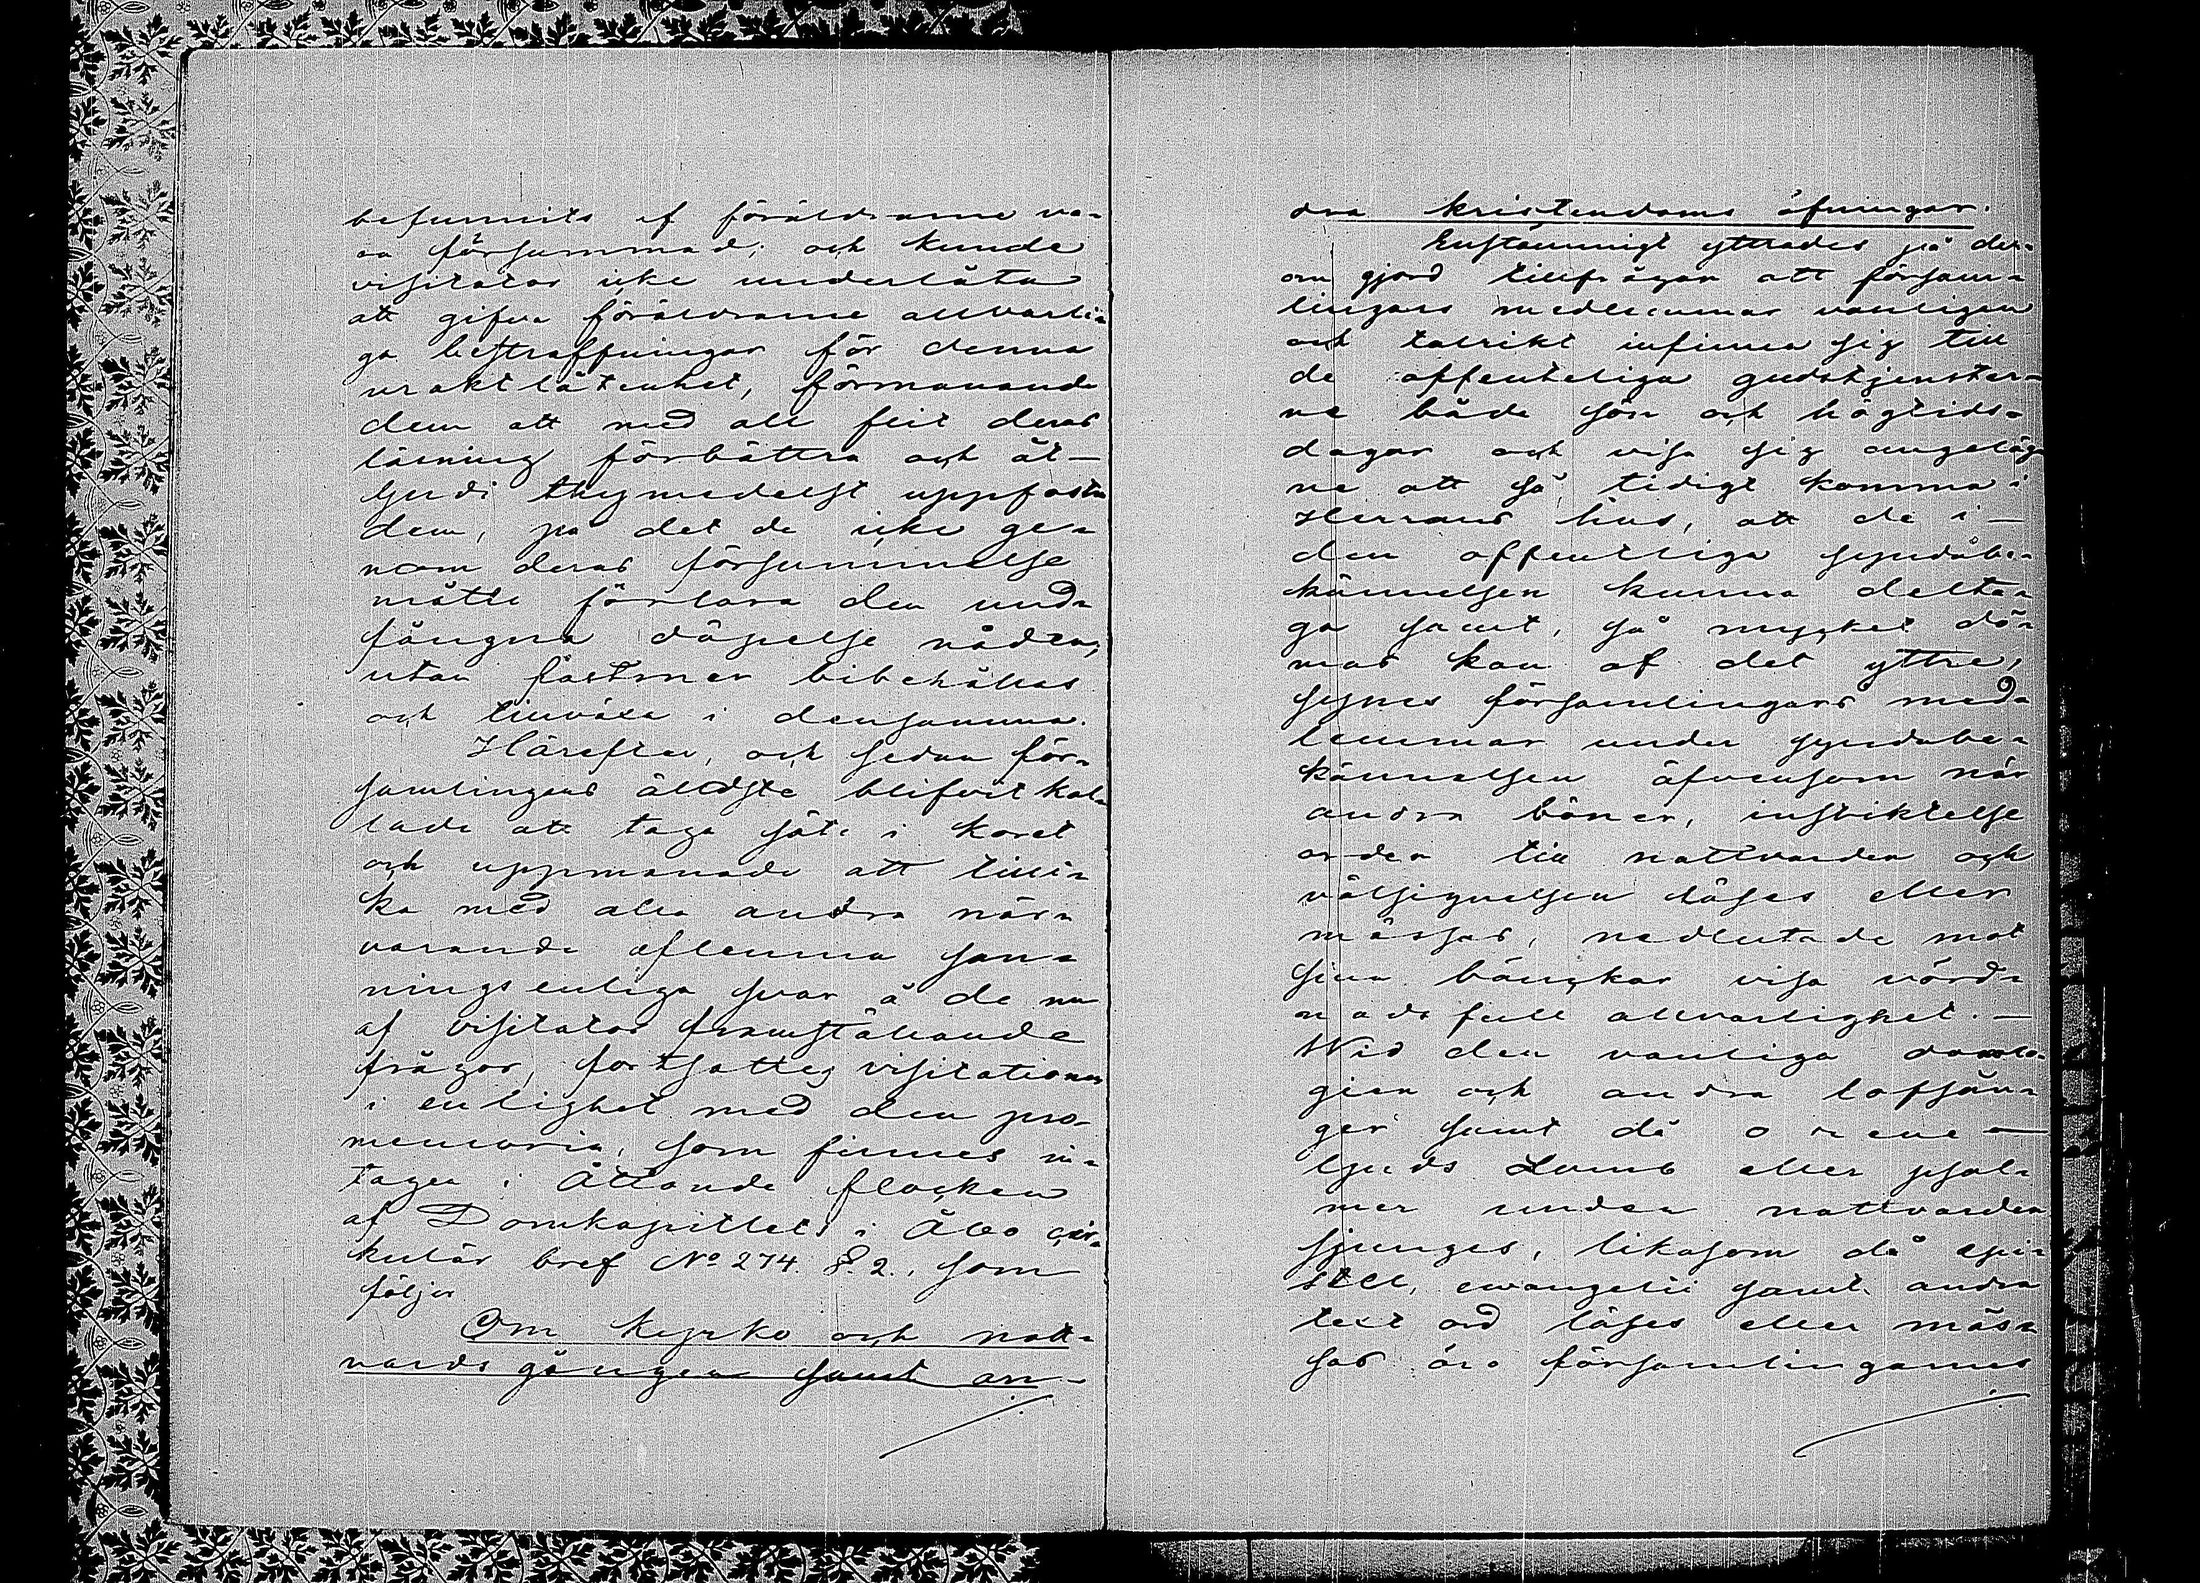 befunnits af föräldrarne va-
ra försummad; och kunde
visitator icke underlåta
att gifva föräldrarne allvarli-
ga bestraffningar för denna
uraktlåtenhet, förmanande
dem att med all flit deras
läsning förbättra och åt-
lyudi thymedelst uppfostra
dem, på det de icke ge-
nom deras försummelse
måtte förlora den und-
fångna döpelse nåden,
utan fastmer bibehållas
och tillväxa i densamma.
Härefter, och sedan för-
samlingens äldste blifvit kal-
lade att taga säte i koret
och uppmanade att tilli-
ka med alla andra när-
varande aflemna san-
ningsenliga svar å de nu
af visitator framställande
frågor, fortsattes visitationen
i enlighet med den pro-
memoria, som finnes in-
tagen i Åttonde flocken
af Domkapitlets i Åbo cir-
kulär bref No 274. §. 2., som
följer
Om kyrko och natt-
vards gången samt an-
dra kristendoms öfningar.
Enstämmigt yttrades på der-
om gjord tillfrågan att försam-
lingens medlemmar vanligen
och talrikt infinna sig till
de offenteliga gudstjenster-
ne både sön och högtids-
dagar och visa sig angeläg-
ne att så tidigt komma i
Herrans hus, att de i
den offentliga syndabe-
kännelsen kunna delta-
ga samt, så mycket dö-
mas kan af det yttre,
synes församlingens med-
lemmar under syndabe-
kännelsen äfvensom när
andra böner, instiktelse
orden till nattvarden och
välsignelsen läses eller
mässas, nedlutade mot
sina bänckar visa vörd-
nads full allvarlighet. —
Wid den vanliga doxolo-
gien och andra lofsån-
ger samt då o rene
ljuds Lamb eller psal-
mer under nattvarden
sjunges, likasom då epi-
stel, evangelii samt andra
text ord läses eller mäs-
sas äro församlingarnes